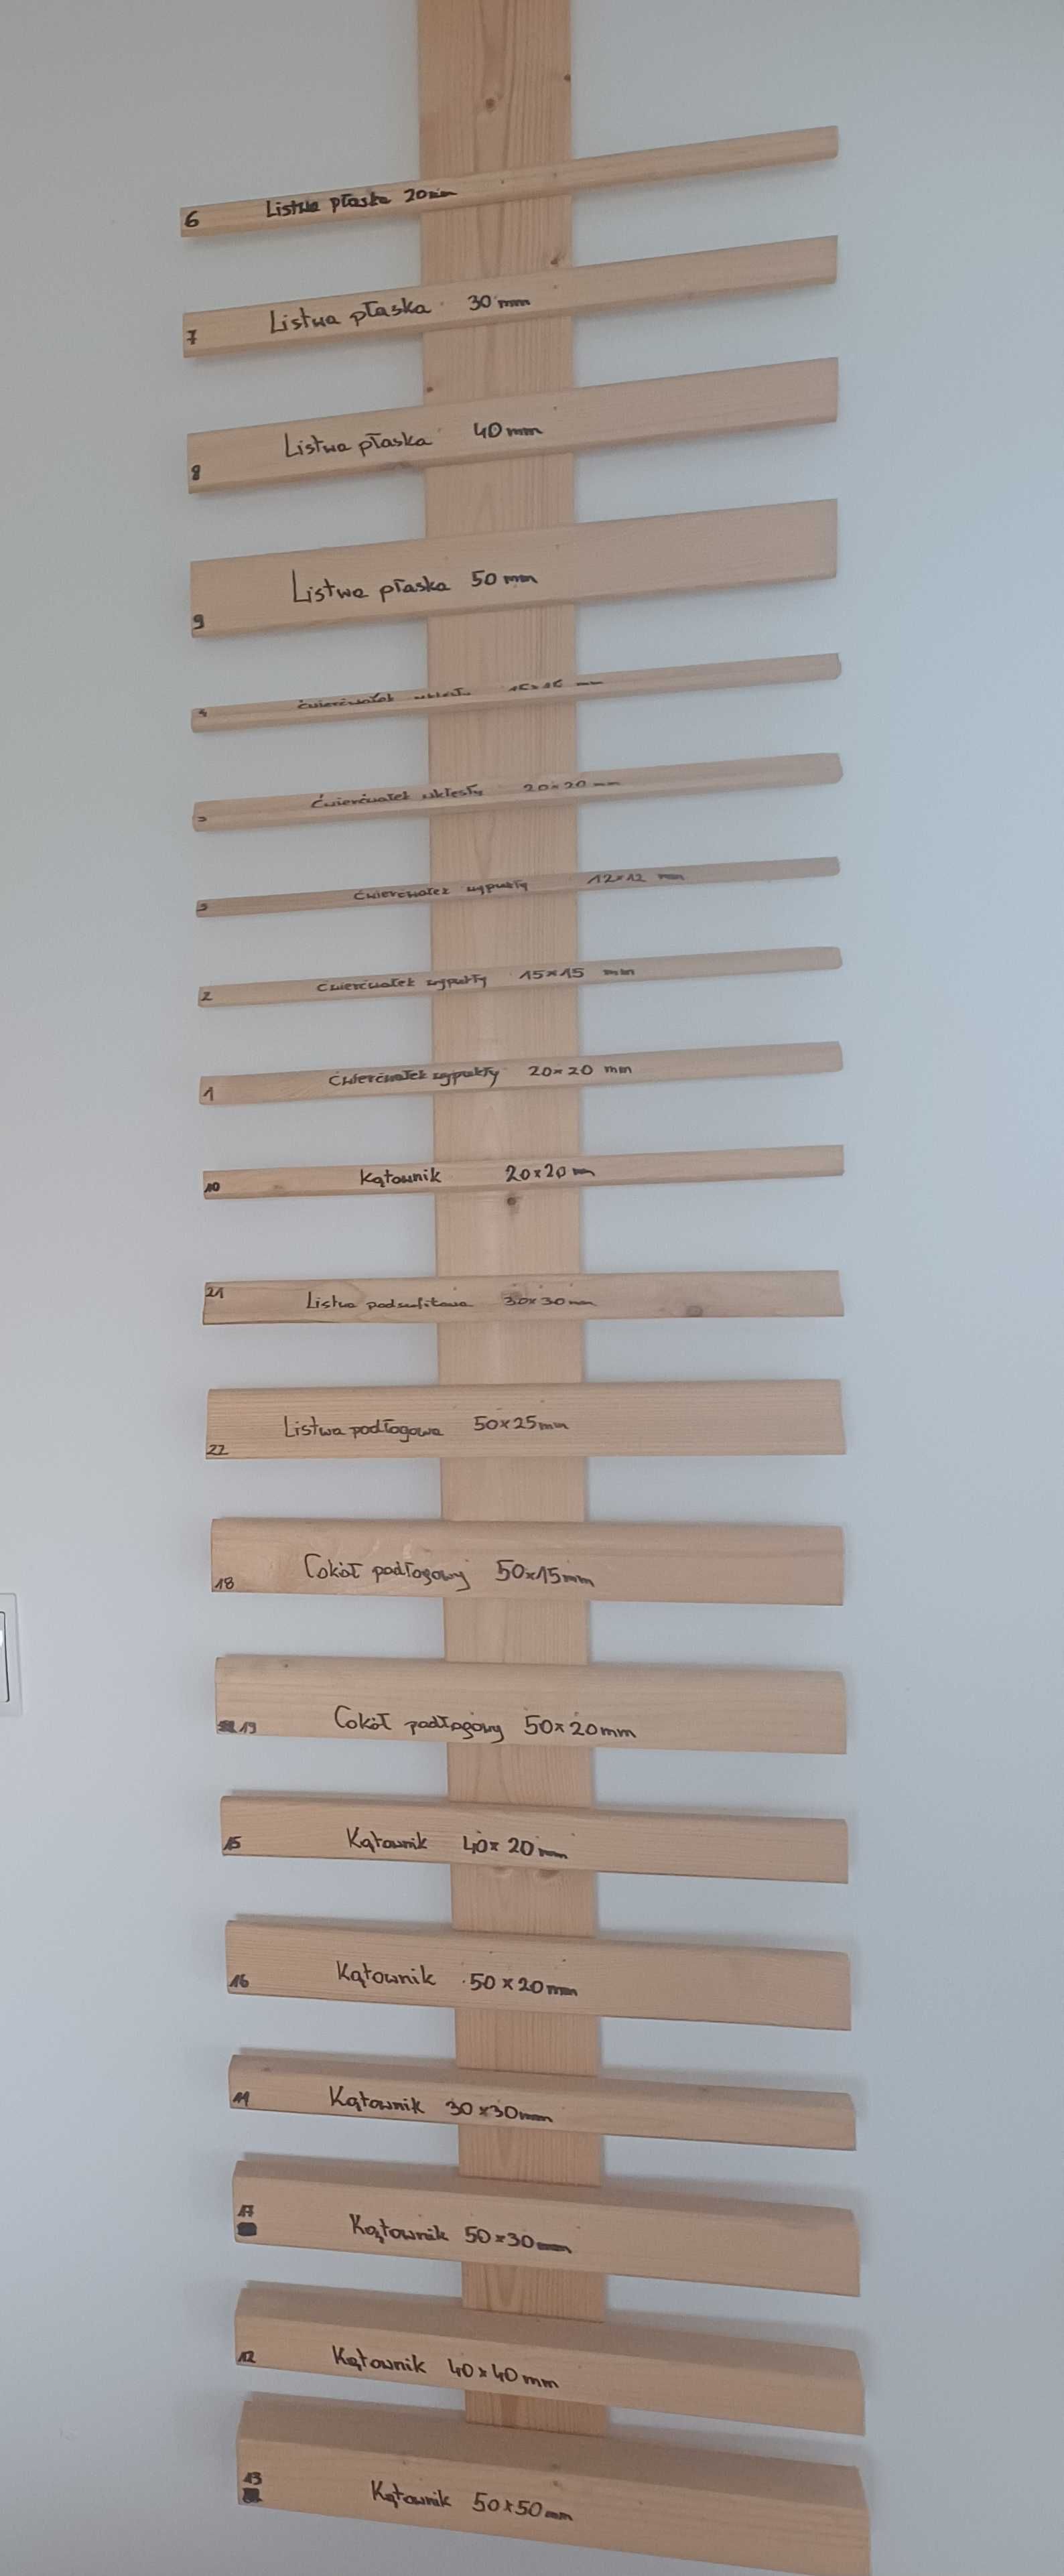 6 Listwa płaska 20mm
7 Listwa płaska 30mm
8 Listwa płaska 40mm
9 Listwa płaska 50mm
4 Ćwierćwałek wklęsły 15x15 mm
Ćwierćwałek wklęsły 20x20 mm
3 Ćwierćwałek wypukły 12x12 mm
2 Ćwierćwałek wypukły 15x15 mm
1 Ćwierćwałek wypukły 20x20 mm
10 Kątownik 20x20m
21 Listwa podsufitowa 30x30mm
22 Listwa podłogowa 50x25mm
18 Cokół podłogowy 50x15mm
19 Cokół podłogowy 50x20mm
15 Kątownik 40x20mm
16 Kątownik 50x20mm
11 Kątownik 30x30mm
17 Kątownik 50x30mm
12 Kątownik 40x40mm
13 Kątownik 50x50mm